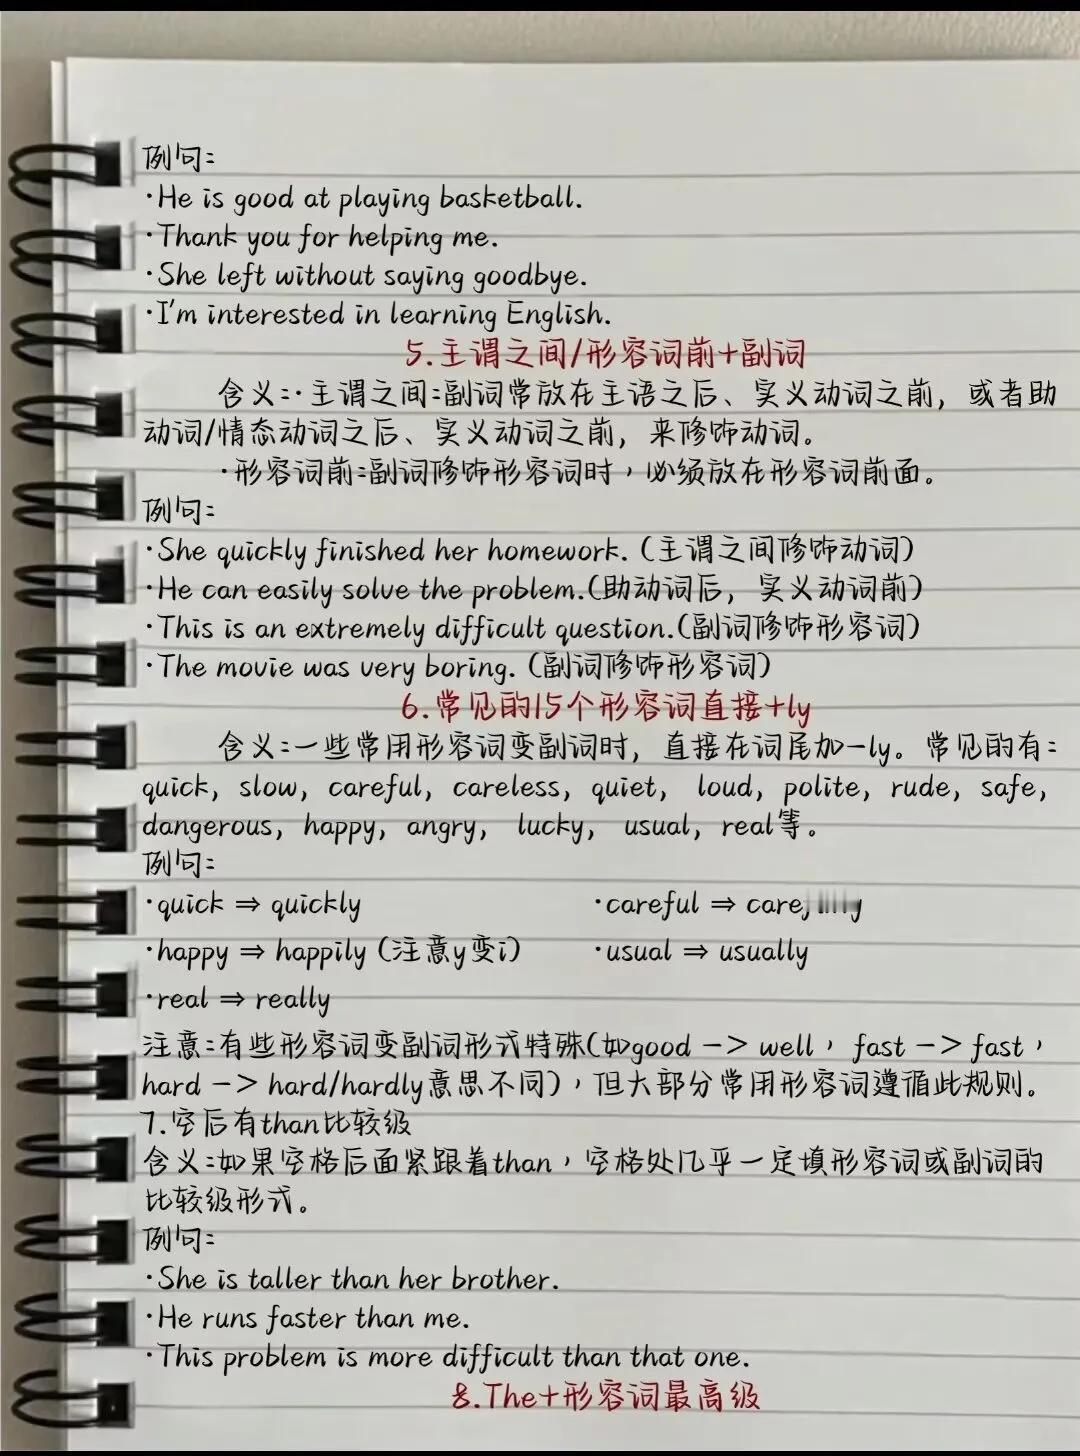 例句:
·He is good at playing basketball.
·Thank you for helping me.
·She left without saying goodbye.
·I'm interested in learning English.
5.主谓之间/形容词前+副词
含义:·主谓之间:副词常放在主语之后、实义动词之前，或者助
动词/情态动词之后、实义动词之前，来修饰动词。
·形容词前:副词修饰形容词时，必须放在形容词前面。
例句:
·She quickly finished her homework. (主谓之间修饰动词)
·He can easily solve the problem.(助动词后，实义动词前)
·This is an extremely difficult question.(副词修饰形容词)
·The movie was very boring. (副词修饰形容词)
6.常见的15个形容词直接+ly
含义:一些常用形容词变副词时，直接在词尾加-ly。常见的有:
quick, slow, careful, careless, quiet, loud, polite, rude, safe,
dangerous, happy, angry, lucky, usual, real等。
例句:
·quick ⇒ quickly ·careful ⇒
·happy ⇒ happily (注意y变i) ·usual ⇒ usually
·real ⇒ really
注意:有些形容词变副词形式特殊(如good -> well，fast -> fast，
hard -> hard/hardly意思不同)，但大部分常用形容词遵循此规则。
7.空后有than比较级
含义:如果空格后面紧跟着than，空格处几乎一定填形容词或副词的
比较级形式。
例句:
·She is taller than her brother.
·He runs faster than me.
·This problem is more difficult than that one.
8.The+形容词最高级